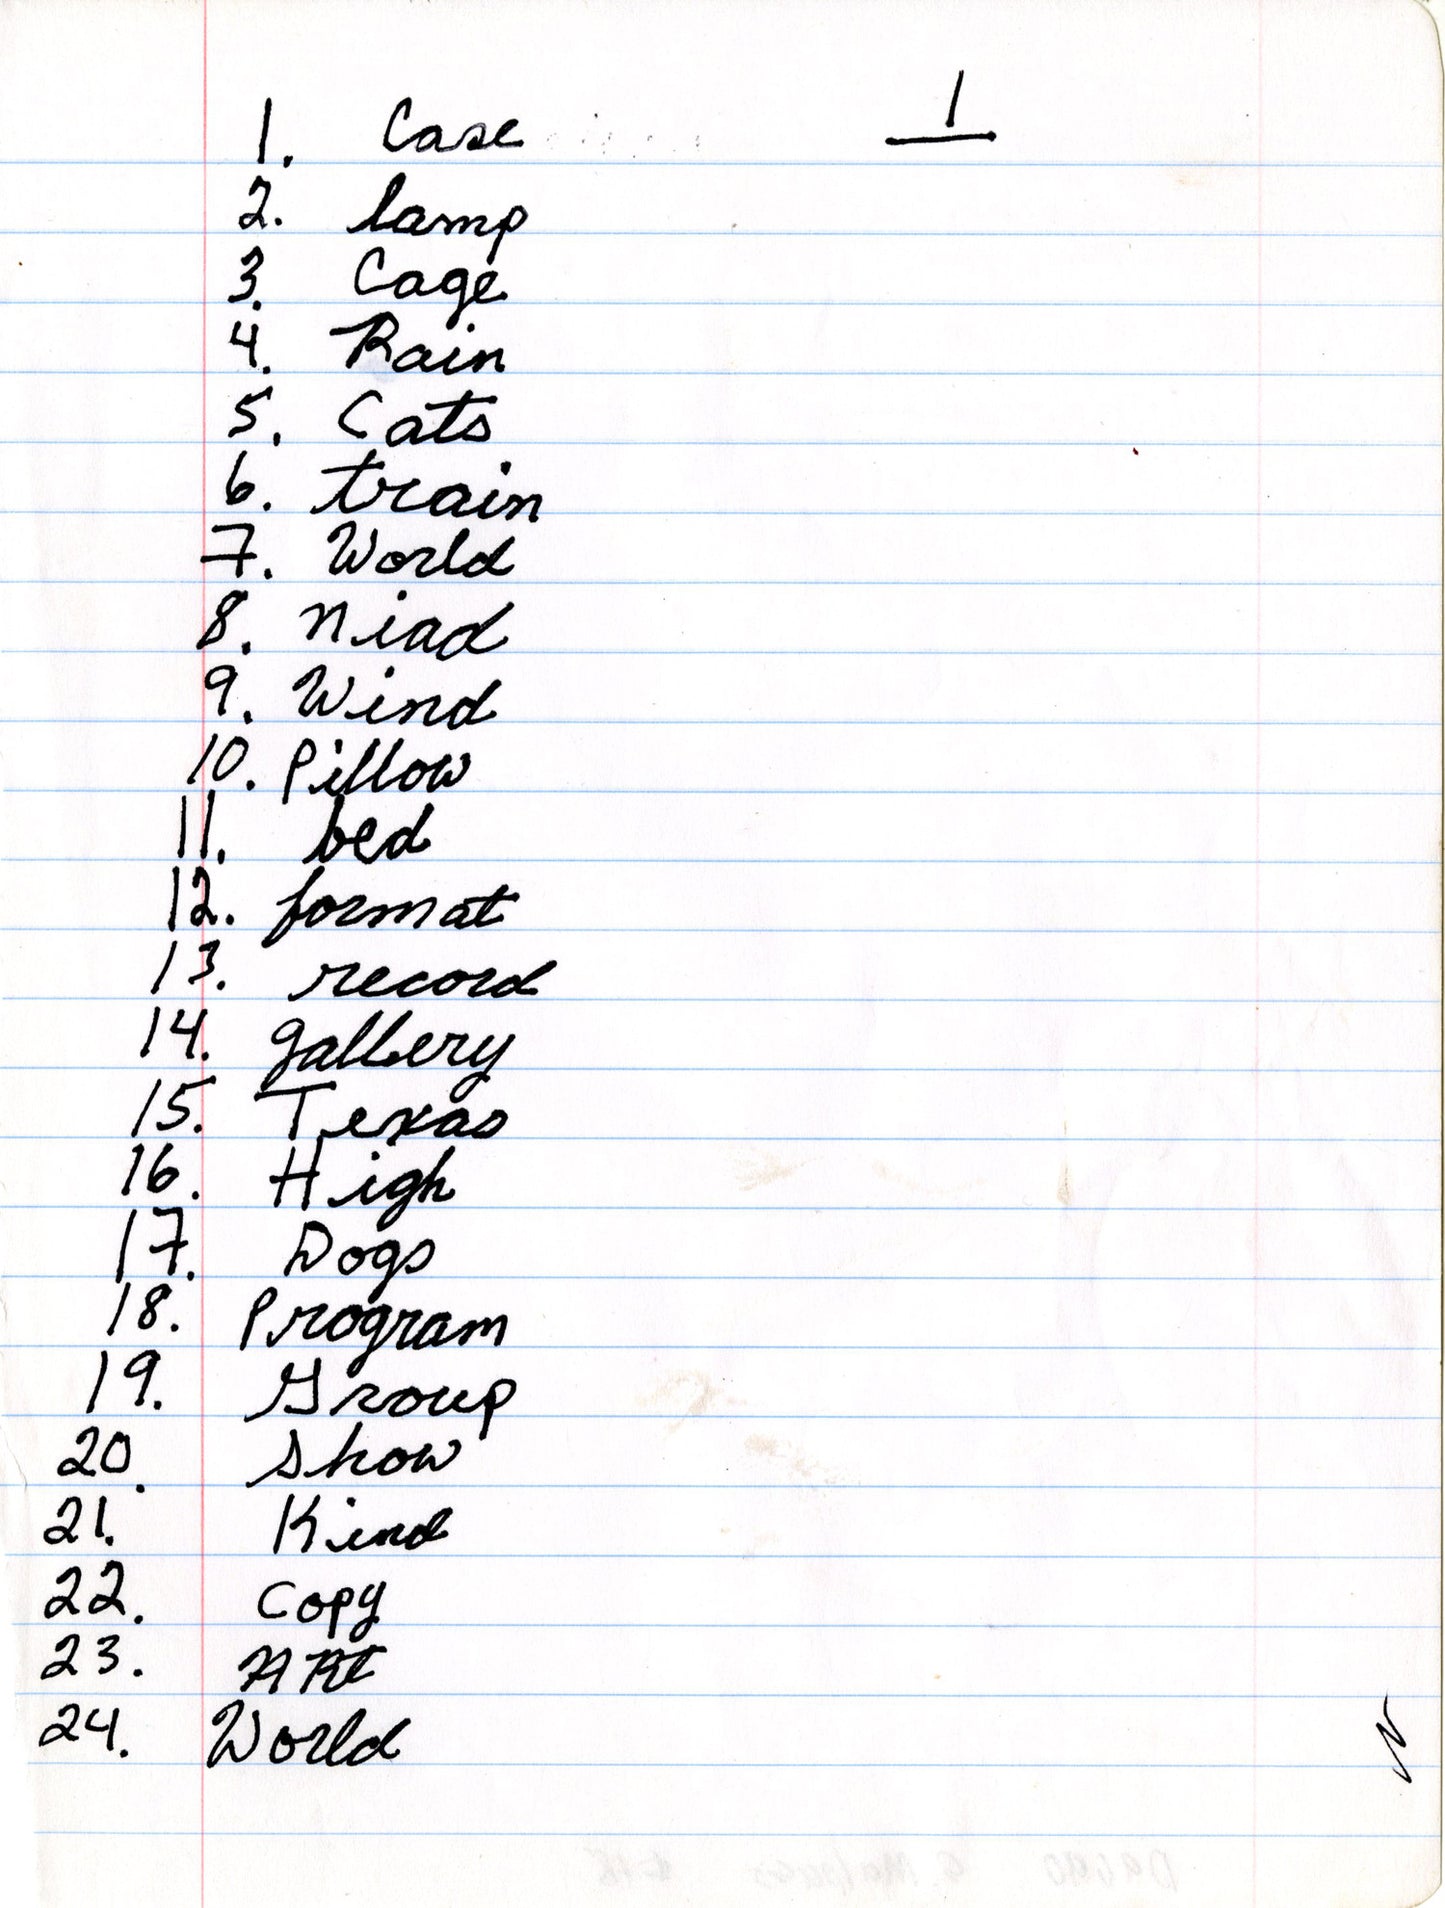 1. Case 1
2. lamp
3. Cage
4. Rain
5. Cats
6. train
7. World
8. Niad
9. Wind
10. Pillow
11. bed
12. format
13. record
14. gallery
15. Texas
16. High
17. Dogs
18. Program
19. Group
20. Show
21. Kind
22. Copy
23. ARt
24. World